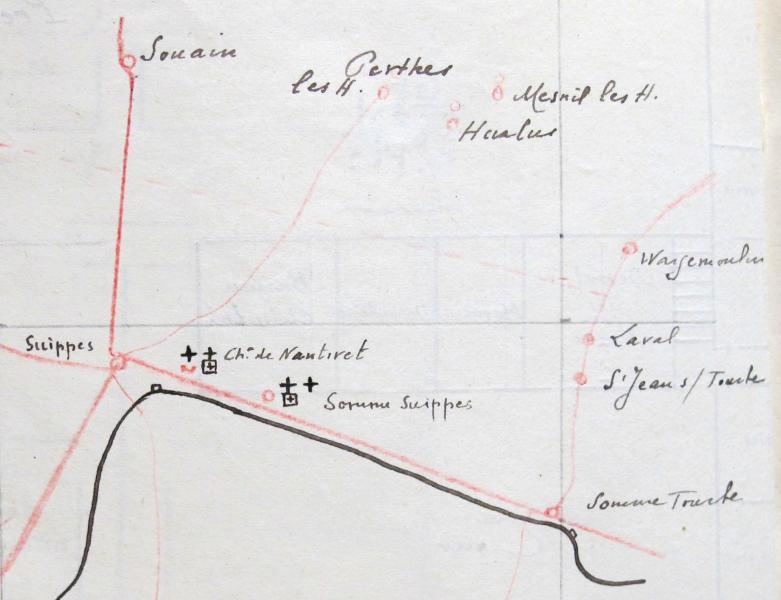 Souain
Perthes
les H.
Mesnil les H.
Hurlus
Wargemoulin
Laval
Suippes
Chau de Nantivet
St Jean s/ Tourbe
Somme Suippes
Somme Tourbe